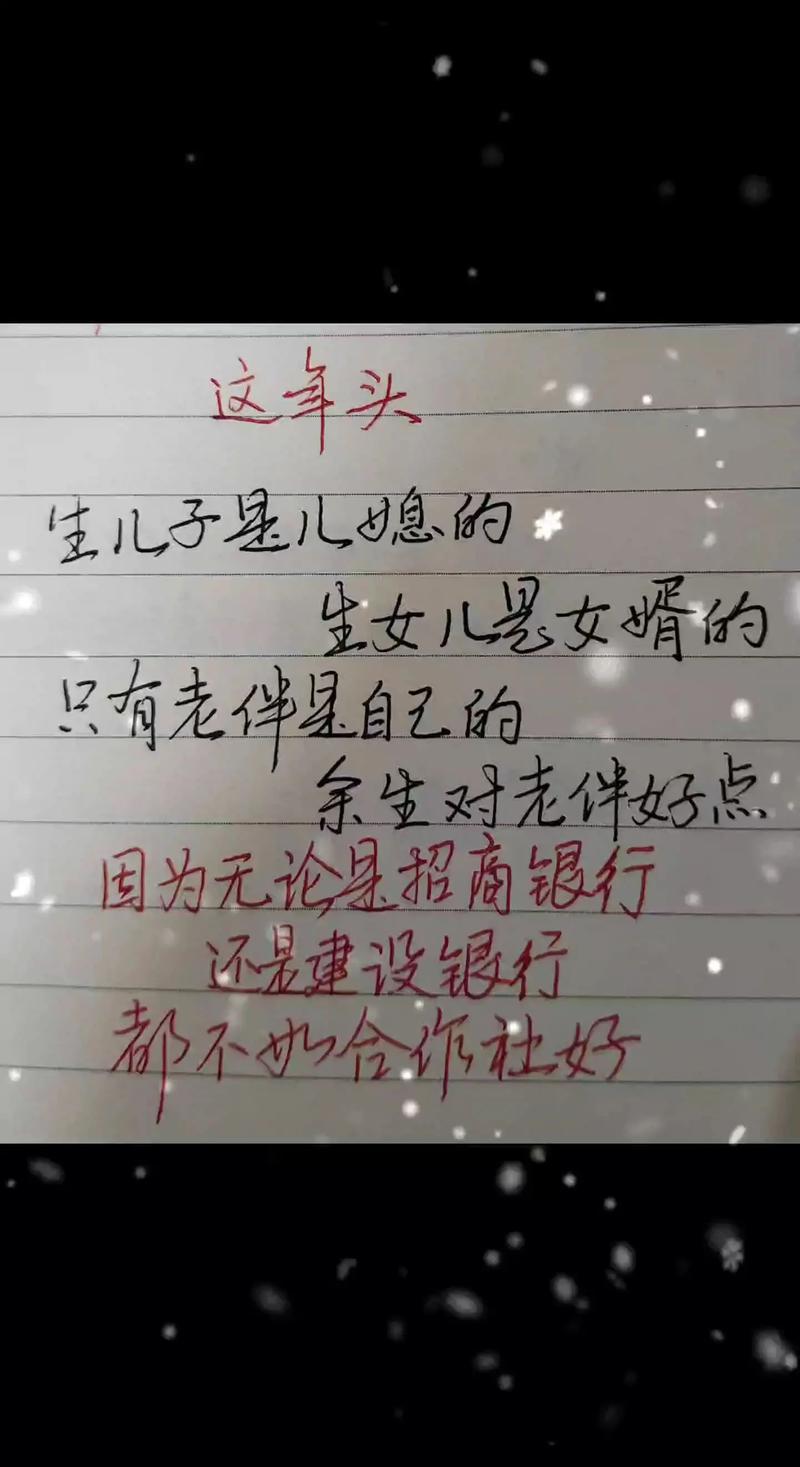 这年头
生儿子是儿媳的
生女儿是女婿的
只有老伴是自己的
余生对老伴好点
因为无论是招商银行
还是建设银行
都不如合作社好